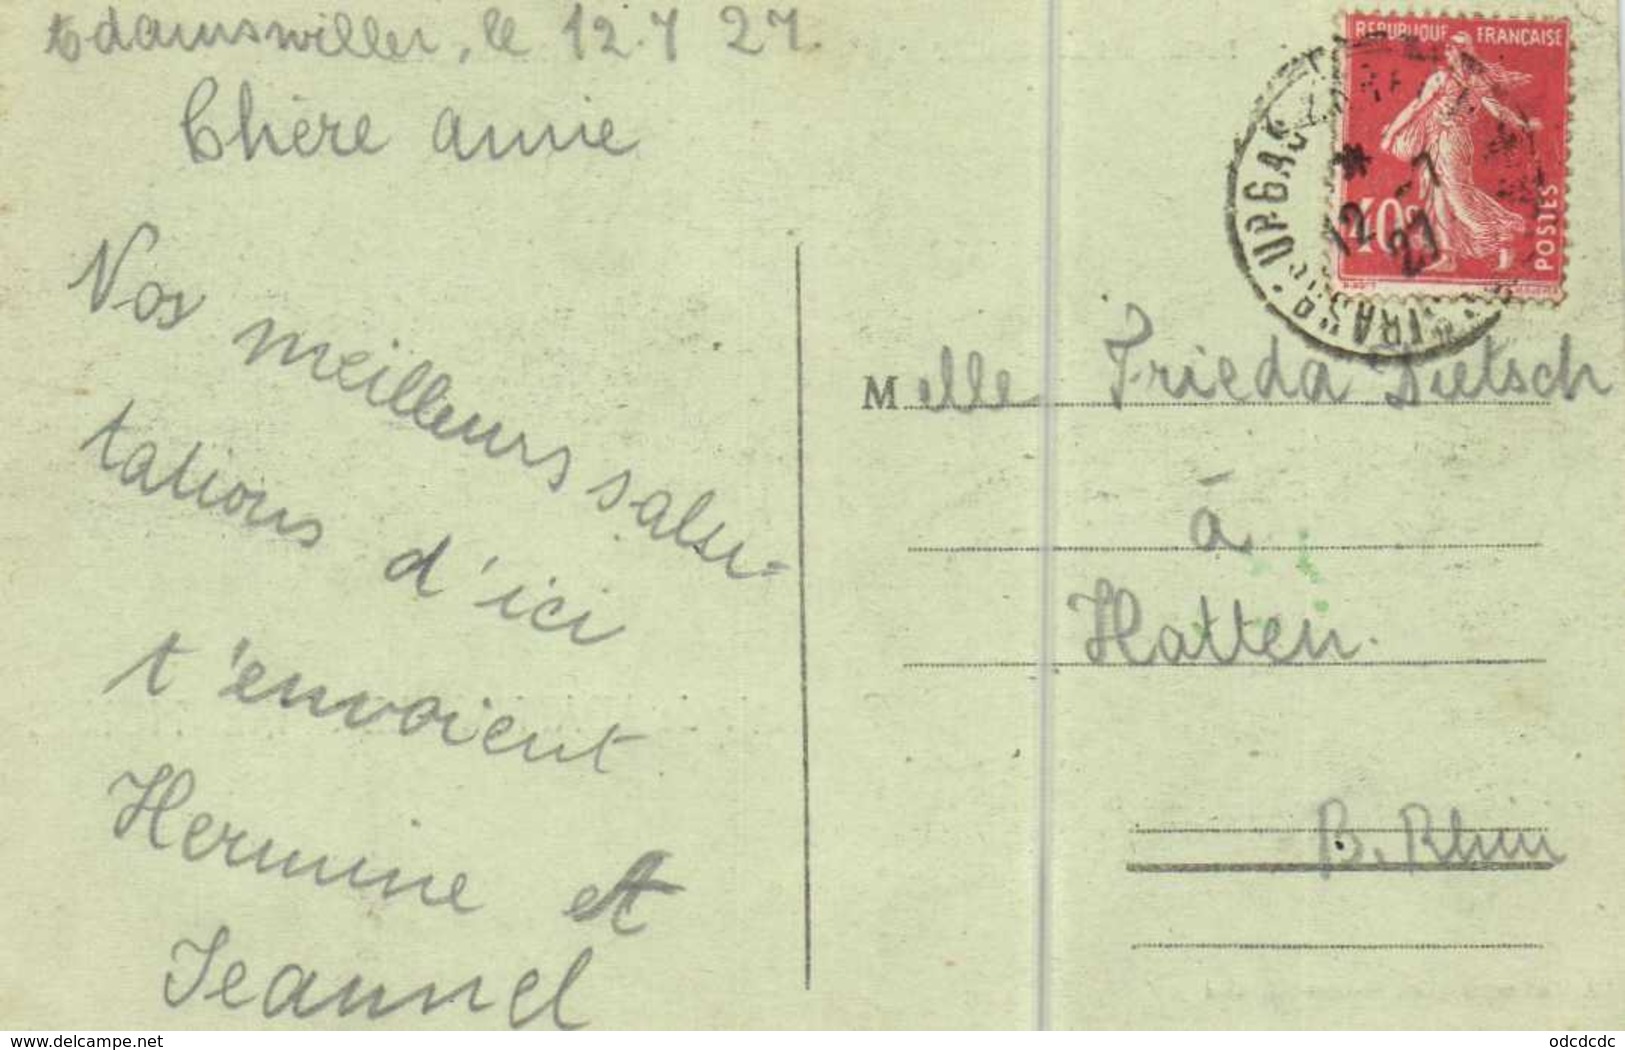 Adamswiller, le 12.7 27.
Chère amie
Nos meilleurs salu-
tations d'ici
t'envoient
Hermine et
Jeannel
REPUBLIQUE FRANÇAISE
40c
POSTES
STRASBOURG
* 12 -7
27
Melle Frieda Dietsch
à
Hatten.
B. Rhin
www.delcampe.net
odcdcdc